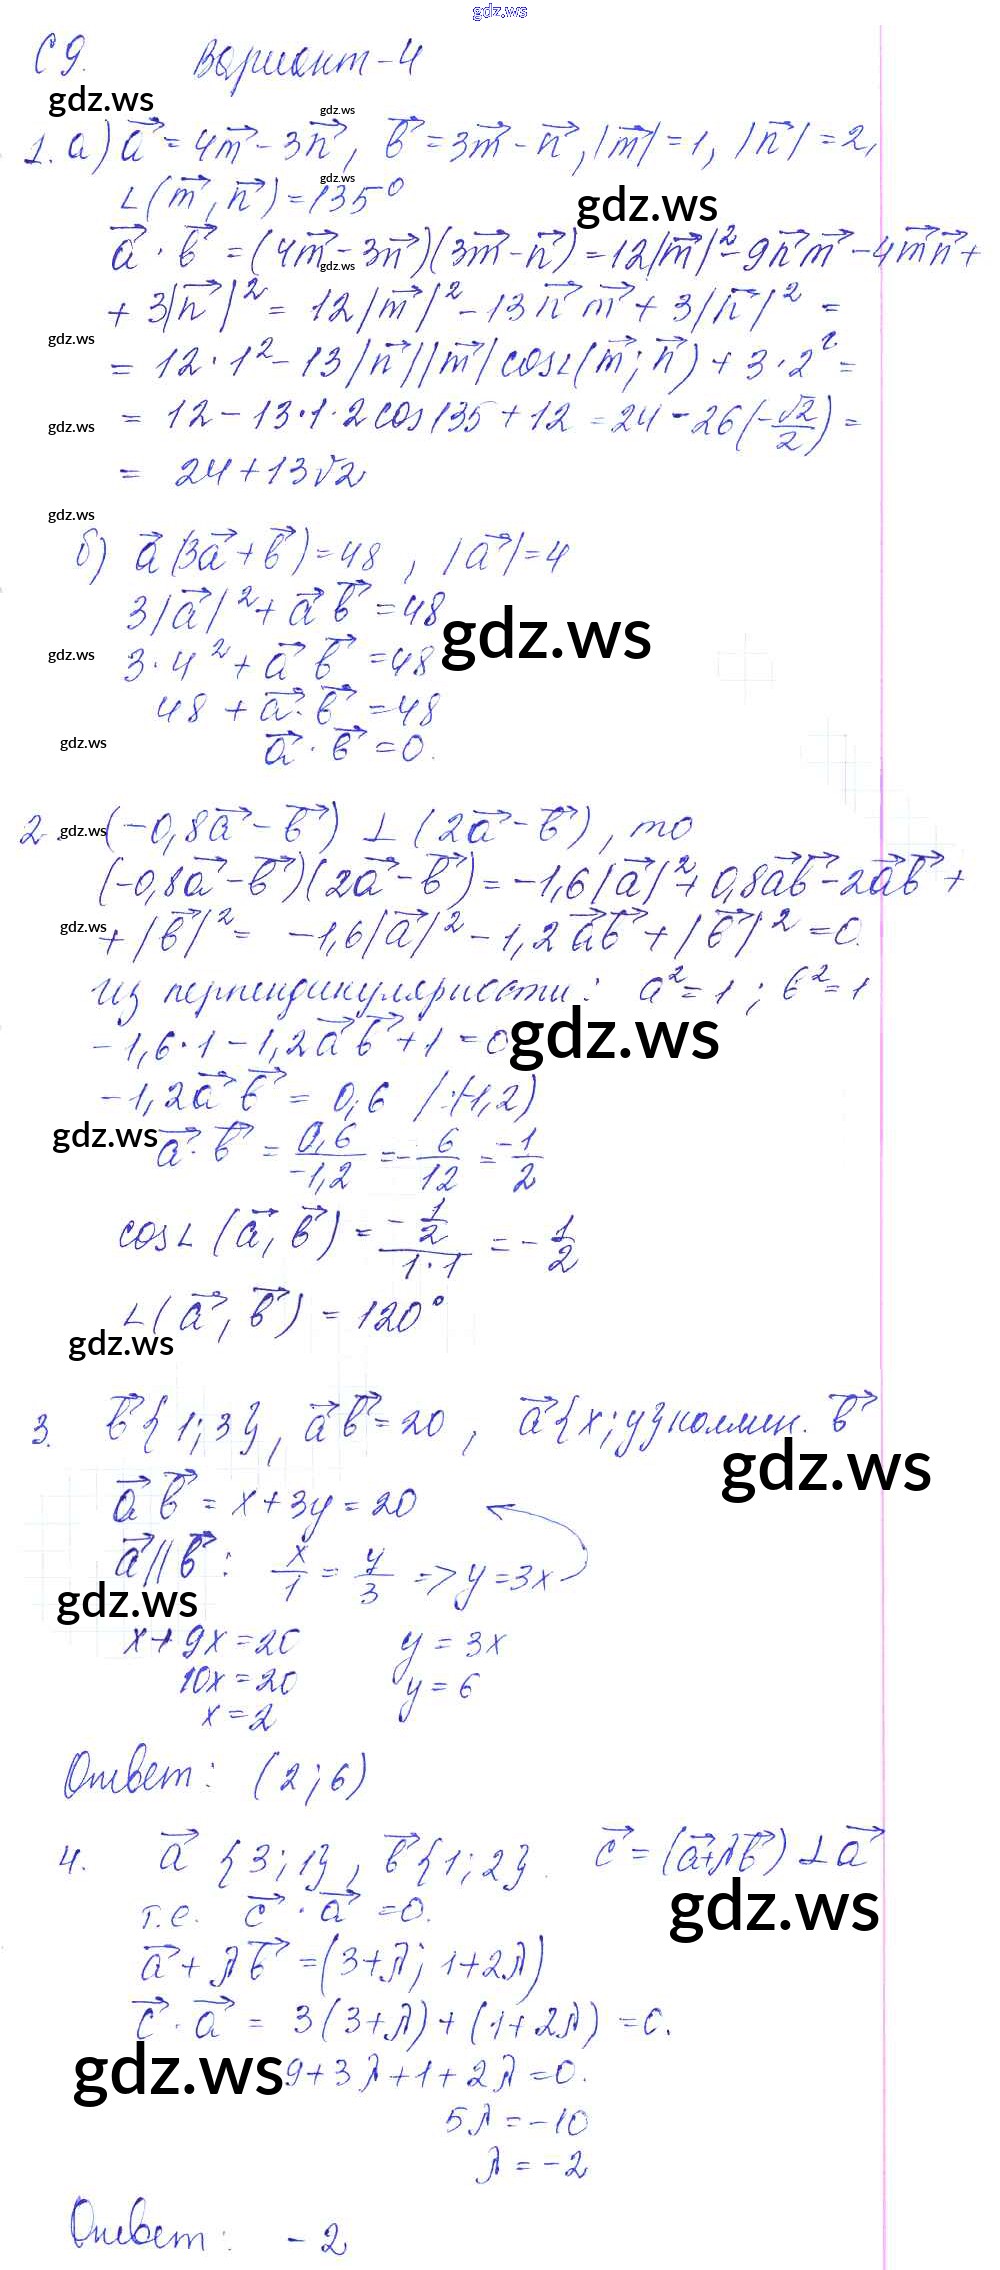 gdz.ws
С 9. Вариант-4
gdz.ws
gdz.ws
1. а) a⃗ = 4m⃗ - 3n⃗, b⃗ = 3m⃗ - n⃗, |m⃗| = 1, |n⃗| = 2,
gdz.ws
∠(m⃗, n⃗) = 135°
gdz.ws
a⃗ · b⃗ = (4m⃗ - 3n⃗)(3m⃗ - n⃗) = 12|m⃗|² - 9n⃗m⃗ - 4m⃗n⃗ +
gdz.ws
+ 3|n⃗|² = 12|m⃗|² - 13n⃗m⃗ + 3|n⃗|² =
gdz.ws
= 12·1² - 13|n⃗||m⃗|cos∠(m⃗; n⃗) + 3·2² =
gdz.ws
= 12 - 13·1·2cos135 + 12 = 24 - 26(-√2/2) =
= 24 + 13√2
gdz.ws
б) a⃗(3a⃗ + b⃗) = 48, |a⃗| = 4
3|a⃗|² + a⃗b⃗ = 48
gdz.ws
gdz.ws
3·4² + a⃗b⃗ = 48
48 + a⃗·b⃗ = 48
gdz.ws
a⃗ · b⃗ = 0.
gdz.ws
2. (-0,8a⃗ - b⃗) ⊥ (2a⃗ - b⃗), то
(-0,8a⃗ - b⃗)(2a⃗ - b⃗) = -1,6|a⃗|² + 0,8a⃗b⃗ - 2a⃗b⃗ +
gdz.ws
+ |b⃗|² = -1,6|a⃗|² - 1,2a⃗b⃗ + |b⃗|² = 0.
из перпендикулярности: a² = 1; b² = 1
gdz.ws
-1,6·1 - 1,2a⃗b⃗ + 1 = 0
-1,2a⃗b⃗ = 0,6 /:(-1,2)
gdz.ws
a⃗·b⃗ = 0,6/-1,2 = -6/12 = -1/2
cos∠(a⃗, b⃗) = (-1/2)/(1·1) = -1/2
∠(a⃗, b⃗) = 120°
gdz.ws
3. b⃗{1; 3}, a⃗b⃗ = 20, a⃗{x; y} коллин. b⃗
gdz.ws
a⃗b⃗ = x + 3y = 20
a⃗||b⃗: x/1 = y/3 => y = 3x
gdz.ws
x + 9x = 20 y = 3x
10x = 20 y = 6
x = 2
Ответ: (2; 6)
4. a⃗{3; 1}, b⃗{1; 2}. c⃗ = (a⃗+λb⃗) ⊥ a⃗
gdz.ws
т.е. c⃗ · a⃗ = 0.
a⃗ + λb⃗ = (3+λ; 1+2λ)
c⃗ · a⃗ = 3(3+λ) + (1+2λ) = 0.
gdz.ws
9 + 3λ + 1 + 2λ = 0.
5λ = -10
λ = -2
Ответ: -2